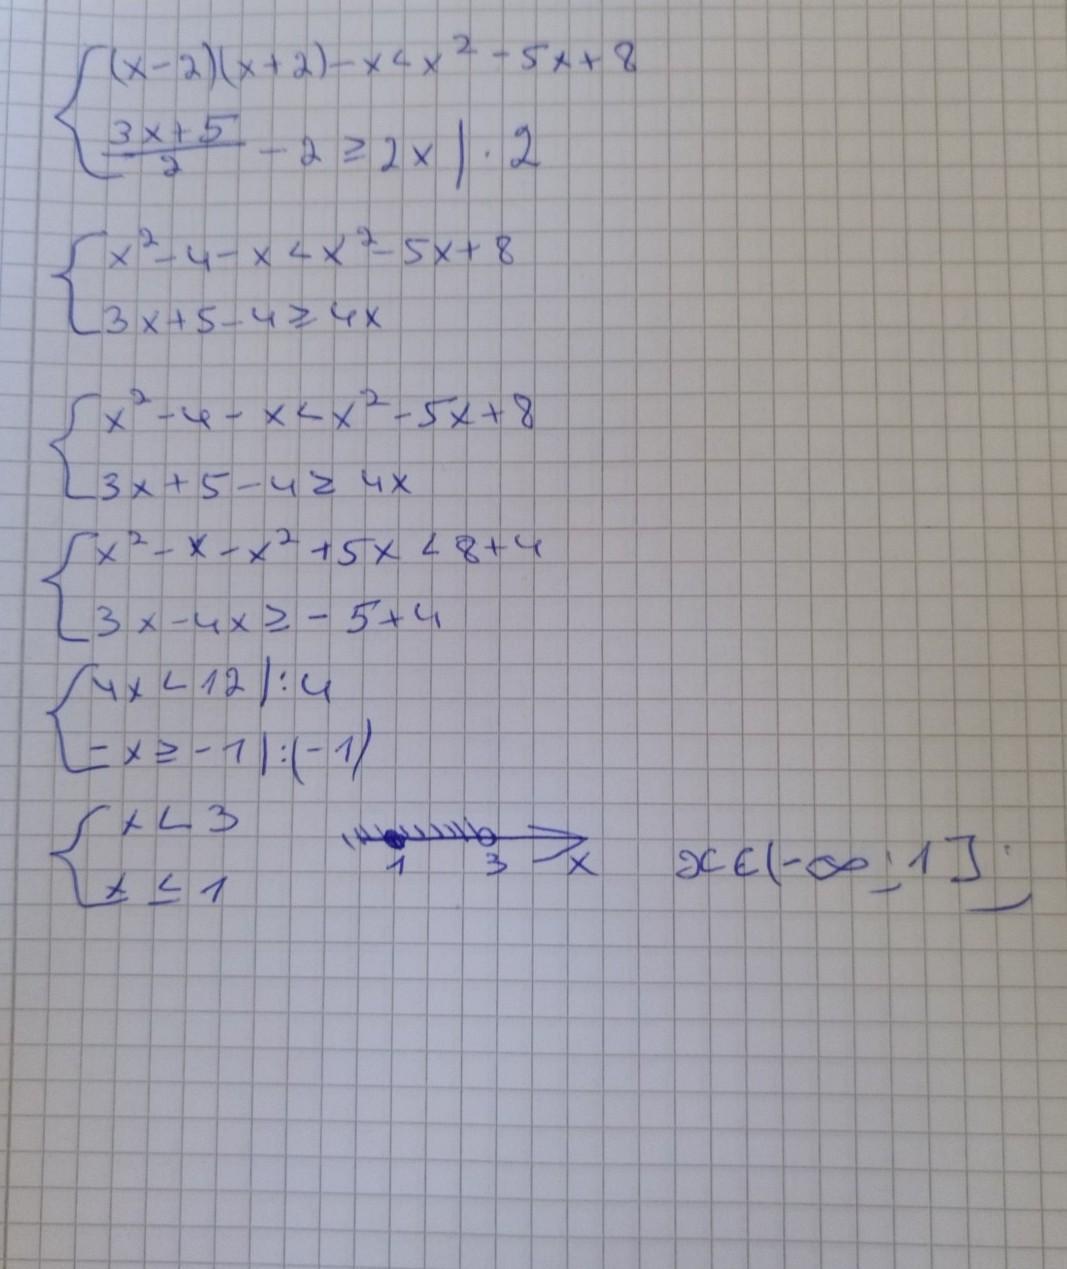 (x-2)(x+2)-x<x²-5x+8
(3x+5)/2 - 2 ≥ 2x |·2
x²-4-x<x²-5x+8
3x+5-4≥4x
x²-4-x<x²-5x+8
3x+5-4≥4x
x²-x-x²+5x<8+4
3x-4x≥-5+4
4x<12|:4
-x≥-1|:(-1)
x<3
x≤1
1 3 x
x∈(-∞;1]